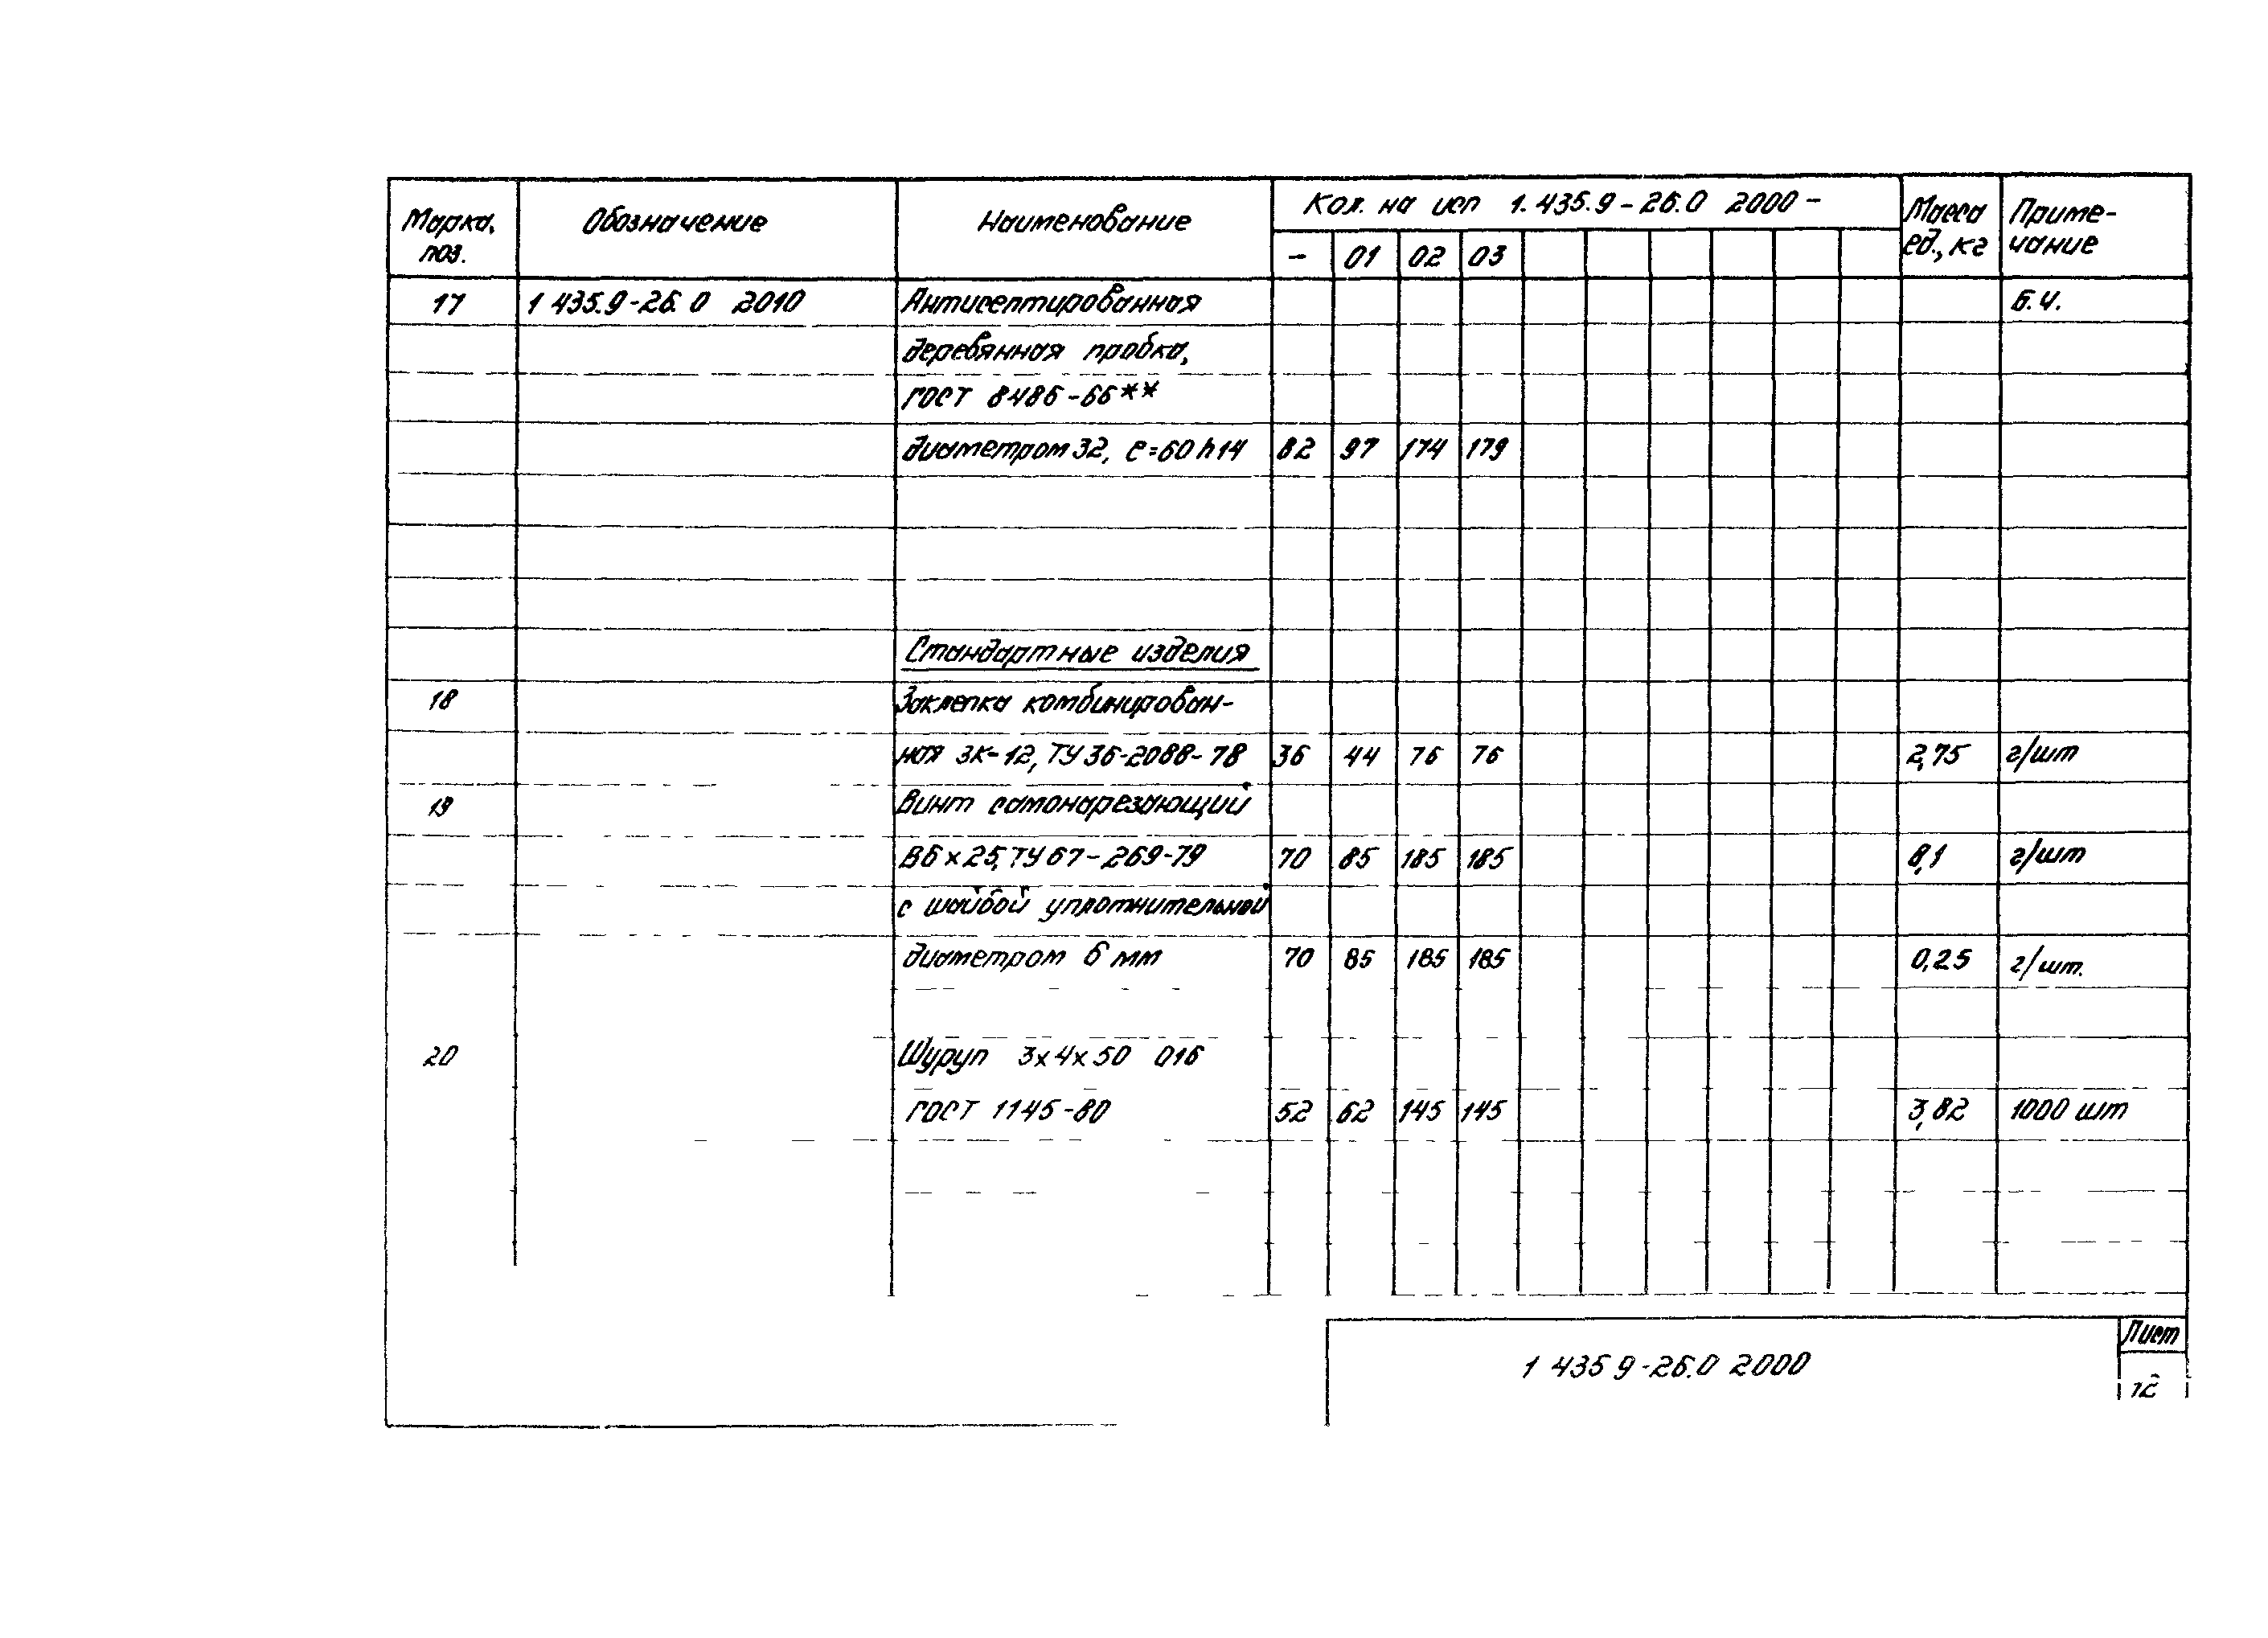 Марка, поз. Обозначение Наименование Кол. на исп 1.435.9-26.0 2000- Масса ед., кг Приме-чание
- 01 02 03
17 1 435.9-26.0 2010 Антисептированная Б.Ч.
деревянная пробка,
ГОСТ 8486-66**
диаметром 32, ℓ=60h14 82 97 174 179
Стандартные изделия
18 Заклепка комбинирован-
ная ЗК-12, ТУ 36-2088-78 36 44 76 76 2,75 г/шт
19 Винт самонарезающий
В6×25, ТУ 67-269-79 70 85 185 185 8,1 г/шт
с шайбой уплотнительной
диаметром 6 мм 70 85 185 185 0,25 г/шт.
20 Шуруп 3×4×50 016
ГОСТ 1145-80 52 62 145 145 3,82 1000 шт
1 435 9-26.0 2000
Лист
12